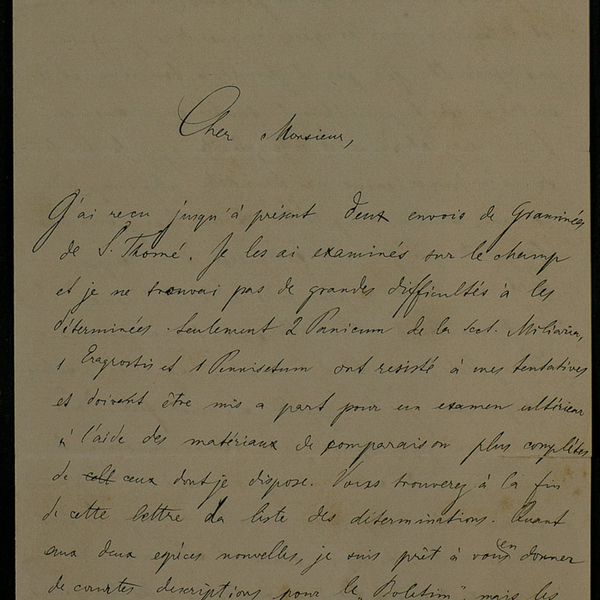 Cher Monsieur,
J'ai reçu jusqu'à présent deux envois de Graminées
de S. Thomé. Je les ai examinés sur le champ
et je ne trouvai pas de grandes difficultés à les
déterminées. Seulement 2 Panicum de la sect. Miliaria,
1 Eragrostis et 1 Pennisetum ont resisté à mes tentatives
et doivent être mis a part pour un examen ultérieur
à l'aide des matériaux de comparaison plus complètes
de ceux dont je dispose. Vous trouverez à la fin
de cette lettre la liste des déterminations. Quant
aux deux espèces nouvelles, je suis prêt à vous en donner
de courtes descriptions pour le „Boletim" mais les